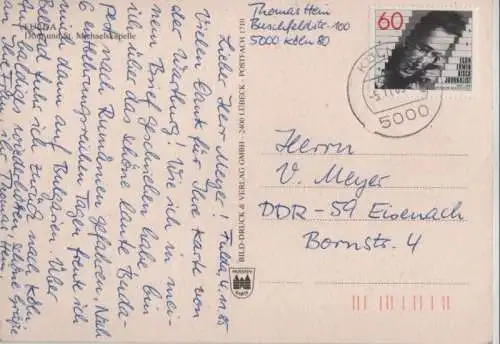 FULDA
Dom und St. Michaelskapelle
Fulda, 4.11.85
Lieber Herr Meyer!
Vielen Dank für Ihre Karte von
der Wartburg! Wie ich in mei-
nem Brief geschrieben habe, bin
ich über das schöne laute Buda-
pest nach Rumänien gefahren. Nach
6 erholungsreichen Tagen traute ich
mich dann auf Bulgarien. Über
Belgrad fuhr ich zurück nach Köln.
Auf baldiges Wiederhören schöne Grüße
Ihr Thomas Hein.
BILD-DRUCK & VERLAG GMBH · 2400 LÜBECK · POSTFACH 1710
Thomas Hein
Buschfeldstr. 100
5000 Köln 80
60
EGON
ERWIN
KISCH
JOURNALIST
KÖLN
5000
Herrn
V. Meyer
DDR-59 Eisenach
Bornstr. 4